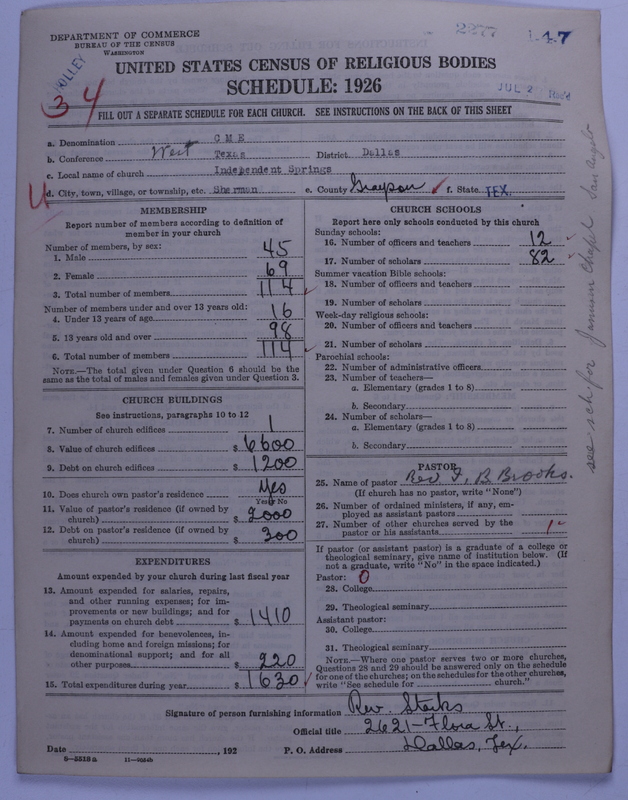 DEPARTMENT OF COMMERCE
BUREAU OF THE CENSUS
WASHINGTON
2277
1-47
34
JUL 2 Rec'd
UNITED STATES CENSUS OF RELIGIOUS BODIES
SCHEDULE: 1926
FILL OUT A SEPARATE SCHEDULE FOR EACH CHURCH. SEE INSTRUCTIONS ON THE BACK OF THIS SHEET
a. Denomination C M E
b. Conference West Texas District Dallas
c. Local name of church Independent Springs
d. City, town, village, or township, etc. Sherman e. County Grayson f. State TEX.
MEMBERSHIP
Report number of members according to definition of
member in your church
Number of members, by sex:
1. Male 45
2. Female 69
3. Total number of members 114
Number of members under and over 13 years old:
4. Under 13 years of age 16
5. 13 years old and over 98
6. Total number of members 114
NOTE.—The total given under Question 6 should be the
same as the total of males and females given under Question 3.
CHURCH BUILDINGS
See instructions, paragraphs 10 to 12
7. Number of church edifices 1
8. Value of church edifices $ 6600
9. Debt on church edifices $ 1200
10. Does church own pastor's residence Yes
Yes or No
11. Value of pastor's residence (if owned by
church) $ 2000
12. Debt on pastor's residence (if owned by
church) $ 300
EXPENDITURES
Amount expended by your church during last fiscal year
13. Amount expended for salaries, repairs,
and other running expenses; for im-
provements or new buildings; and for
payments on church debt $ 1410
14. Amount expended for benevolences, in-
cluding home and foreign missions; for
denominational support; and for all
other purposes $ 220
15. Total expenditures during year $ 1630
CHURCH SCHOOLS
Report here only schools conducted by this church
Sunday schools:
16. Number of officers and teachers 12
17. Number of scholars 82
Summer vacation Bible schools:
18. Number of officers and teachers
19. Number of scholars
Week-day religious schools:
20. Number of officers and teachers
21. Number of scholars
Parochial schools:
22. Number of administrative officers
23. Number of teachers—
a. Elementary (grades 1 to 8)
b. Secondary
24. Number of scholars—
a. Elementary (grades 1 to 8)
b. Secondary
PASTOR
25. Name of pastor Rev F. B. Brooks.
(If church has no pastor, write "None")
26. Number of ordained ministers, if any, em-
ployed as assistant pastors
27. Number of other churches served by the
pastor or his assistants 1
If pastor (or assistant pastor) is a graduate of a college or
theological seminary, give name of institution below. (If
not a graduate, write "No" in the space indicated.)
Pastor: 0
28. College
29. Theological seminary
Assistant pastor:
30. College
31. Theological seminary
NOTE.—Where one pastor serves two or more churches,
Questions 28 and 29 should be answered only on the schedule
for one of the churches; on the schedules for the other churches,
write "See schedule for church."
Signature of person furnishing information Rev. Starks
Official title 2621-Flora St.,
Date , 192 P. O. Address Dallas, Tex.
see sch. for Jamison Chapel San Angelo